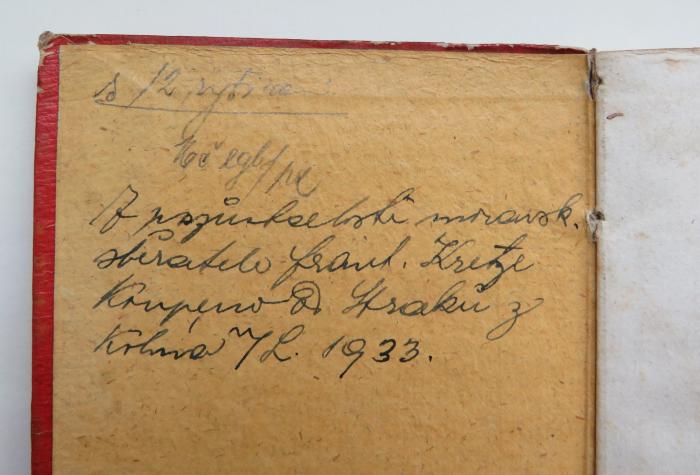 s 12 rytinami
Kč
Z pozůstalosti moravsk.
sběratele frant. Kretze
Koupeno od Straků z
Kolína n/L. 1933.